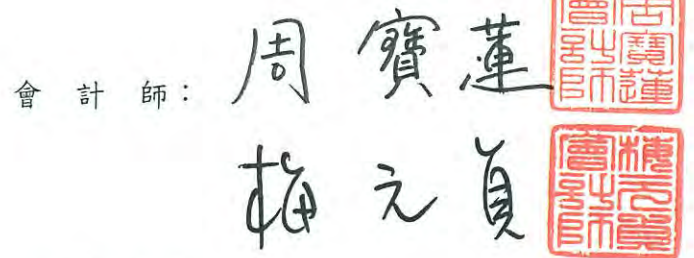 會計師：周寶蓮
周寶蓮會計師
梅元貞
梅元貞會計師